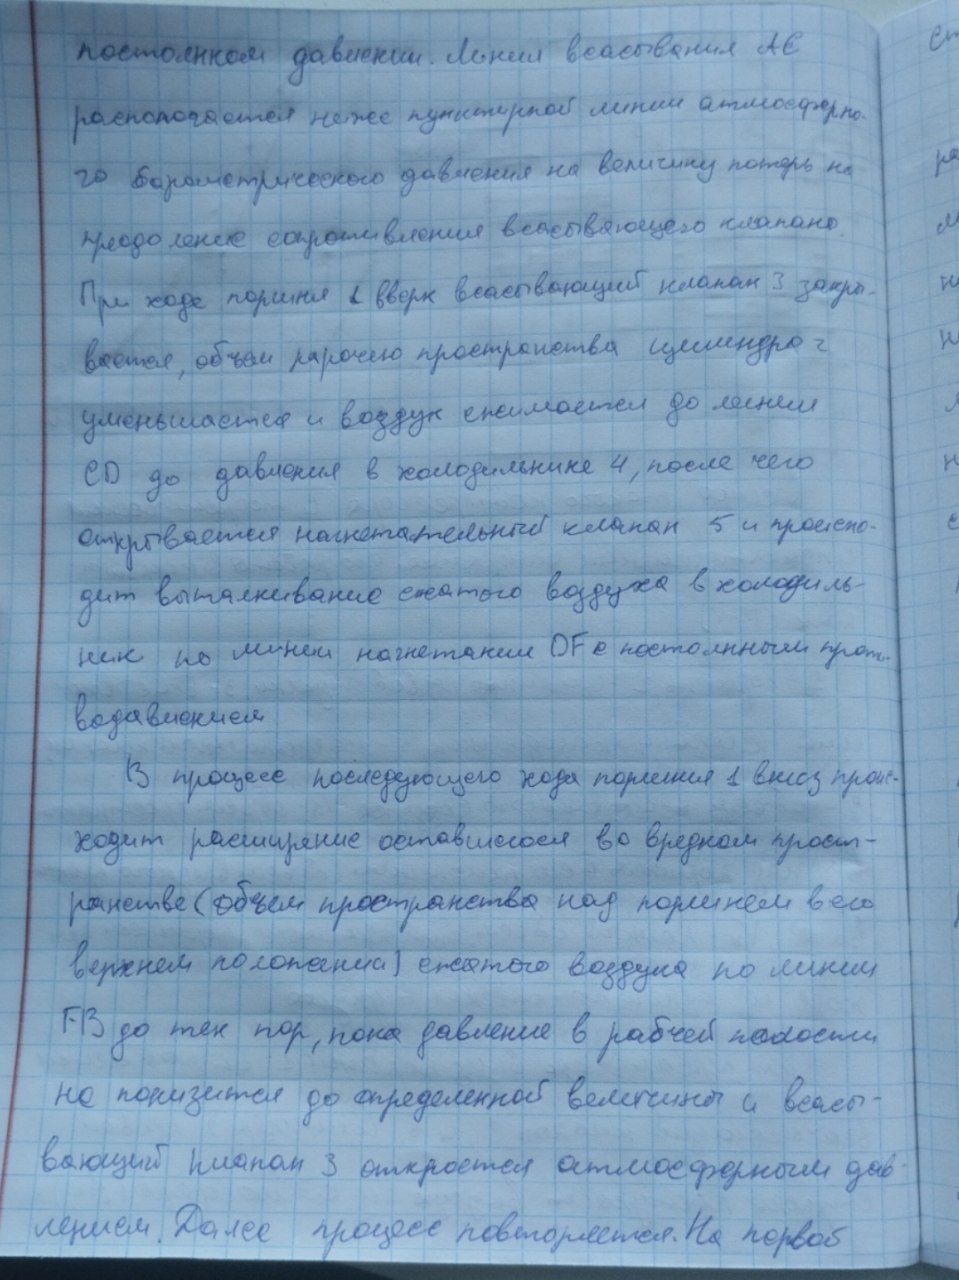 постоянном давлении. Линия всасывания АС
располагается ниже пунктирной линии атмосферно-
го барометрического давления на величину потерь на
преодоление сопротивления всасывающего клапана.
При ходе поршня 1 вверх всасывающий клапан 3 закры-
вается, объем рабочего пространства цилиндра 2
уменьшается и воздух сжимается до линии
CD до давления в холодильнике 4, после чего
открывается нагнетательный клапан 5 и происхо-
дит выталкивание сжатого воздуха в холодиль-
ник по линии нагнетании DF с постоянным проти-
водавлением
В процессе последующего хода поршня 1 вниз проис-
ходит расширение оставшегося во вредном прост-
ранстве (объем пространства над поршнем в его
верхнем положении) сжатого воздуха по линии
FB до тех пор, пока давление в рабчей полости
не понизится до определенной величины и всасы-
вающий клапан 3 откроется атмосферным дав-
лением. Далее процесс повторяется. На первой
ст
ра